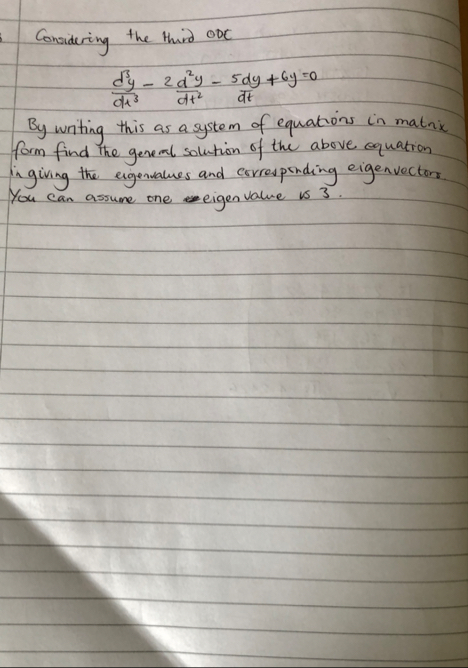 Considering the third ODE
d³y/dt³ - 2d²y/dt² - 5dy/dt + 6y = 0
By writing this as a system of equations in matrix
form find the general solution of the above equation
in giving the eigenvalues and corresponding eigenvectors
You can assume one eigenvalue is 3.